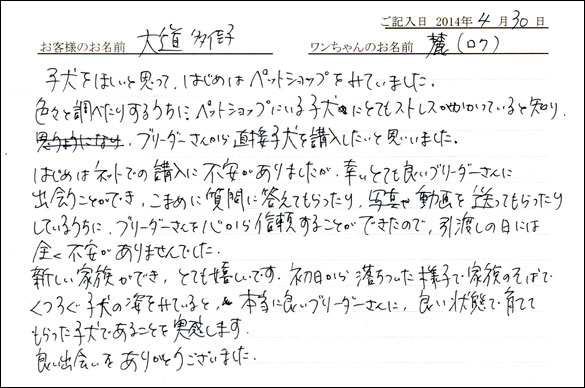 ご記入日 2014年 4 月 30 日
お客様のお名前 大道 多佳子 ワンちゃんのお名前 麓(ロク)
子犬をほしいと思って、はじめはペットショップをみていました。
色々と調べたりするうちに、ペットショップにいる子犬にとてもストレスがかかっていると知り、
思うようになり、ブリーダーさんから直接子犬を購入したいと思いました。
はじめはネットでの購入に不安がありましたが、幸いとても良いブリーダーさんに
出会うことができ、こまめに質問に答えてもらったり、写真や動画を送ってもらったり
しているうちに、ブリーダーさんを心から信頼することができたので、引渡しの日には
全く不安がありませんでした。
新しい家族ができ、とても嬉しいです。初日から落ちついた様子で家族のそばで
くつろぐ子犬の姿をみていると、本当に良いブリーダーさんに、良い状態で育てて
もらった子犬であることを実感します。
良い出会いをありがとうございました。